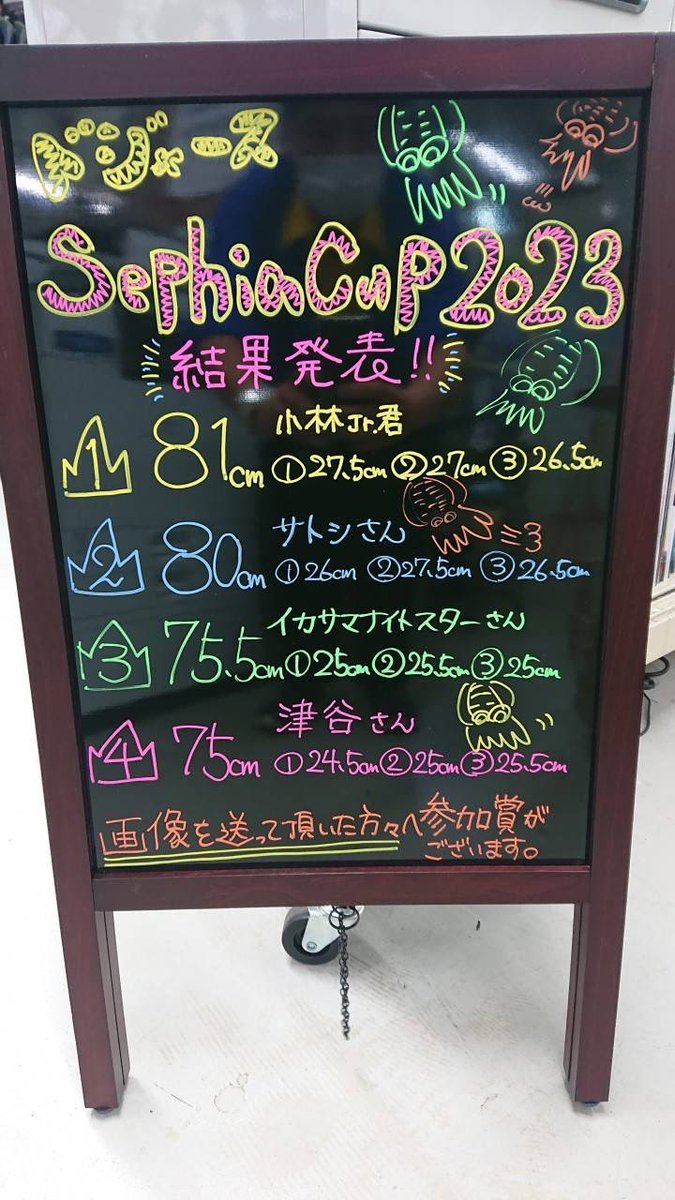 ドジャース
SephiaCup2023
結果発表!!
1 81cm 小林Jr.君
①27.5cm ②27cm ③26.5cm
2 80cm サトシさん
①26cm ②27.5cm ③26.5cm
3 75.5cm イカサマナイトスターさん
①25cm ②25.5cm ③25cm
4 75cm 津谷さん
①24.5cm ②25cm ③25.5cm
画像を送って頂いた方々へ参加賞が
ございます。